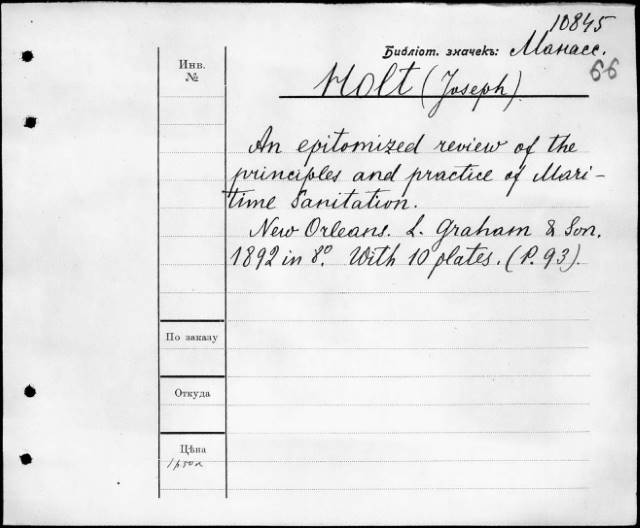 10845
Библіот. значекъ: Манасс.
66
Инв.
№
Holt (Joseph).
An epitomized review of the
principles and practice of Mari-
time Sanitation.
New Orleans. L. Graham & Son.
1892 in 8º. With 10 plates. (P. 93).
По заказу
Откуда
Цѣна